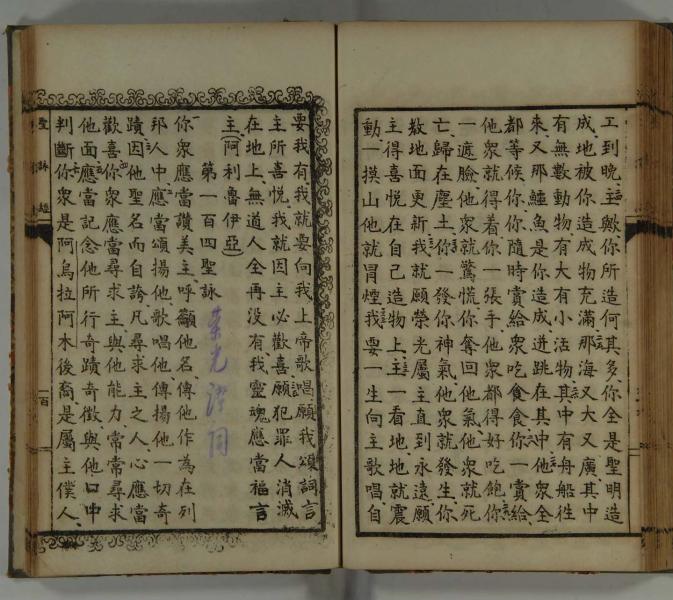 工到晩主歟你所造何其多你全是聖明造
成地被你造成物充滿那海又大又廣其中
有無數動物有大有小活物其中有舟船往
來又那鱷魚是你造成迸跳在其中他衆全
都等候你你隨時賞給衆吃食食你一賞給
他衆就得着你一張手他衆都得好吃飽你
一遮臉他衆就驚慌你奪回他氣他衆就死
亡歸在塵土你一發你神氣他衆就發生你
敎地面更新我就願榮光屬主直到永遠願
主得喜悦在自己造物上主一看地地就震
動一摸山他就冒煙我要一生向主歌唱自
要我有我就要向我上帝歌唱願我頌詞言
主所喜悦我就因主必歡喜願犯罪人消滅
在地上無道人全再没有我靈魂應當福言
主(阿利魯伊亞)
第一百四聖詠
光
你衆應當讃美主呼籲他名傳他作為在列
邦人中應當頌揚他歌唱他傳揚他一切奇
蹟因他聖名而自誇凡尋求主之人心應當
歡喜你衆應當尋求主與他能力常常尋求
他面應當記念他所行奇蹟奇徵與他口中
判斷你衆是阿烏拉阿木後裔是屬主僕人
聖詠經
一百